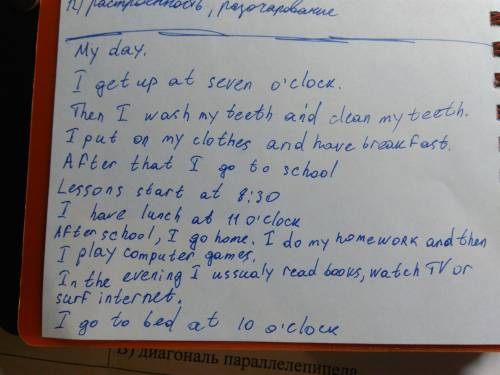 П) расстроенность, разочарование
My day.
I get up at seven o'clock.
Then I wash my teeth and clean my teeth.
I put on my clothes and have breakfast.
After that I go to school
Lessons start at 8:30
I have lunch at 11 o'clock
After school, I go home. I do my homework and then
I play computer games.
In the evening I ussualy read books, watch TV or
surf internet.
I go to bed at 10 o'clock
В) диагональ параллелепипеда